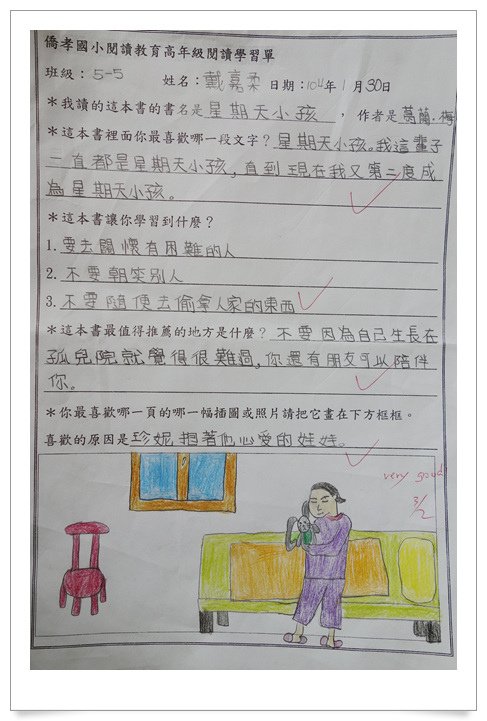 僑孝國小閱讀教育高年級閱讀學習單
班級：5-5 姓名：戴嘉柔 日期：104年1月30日
＊我讀的這本書的書名是星期天小孩，作者是葛蘭.梅
＊這本書裡面你最喜歡哪一段文字？星期天小孩。我這輩子
一直都是星期天小孩，直到現在我又第二度成
為星期天小孩。
＊這本書讓你學習到什麼？
1. 要去關懷有困難的人
2. 不要朝突別人
3. 不要隨便去偷拿人家的東西
＊這本書最值得推薦的地方是什麼？不要因為自己生長在
孤兒院就覺得很難過，你還有朋友可以陪伴
你。
＊你最喜歡哪一頁的哪一幅插圖或照片請把它畫在下方框框。
喜歡的原因是珍妮抱著他心愛的娃娃。
very good!
3/2